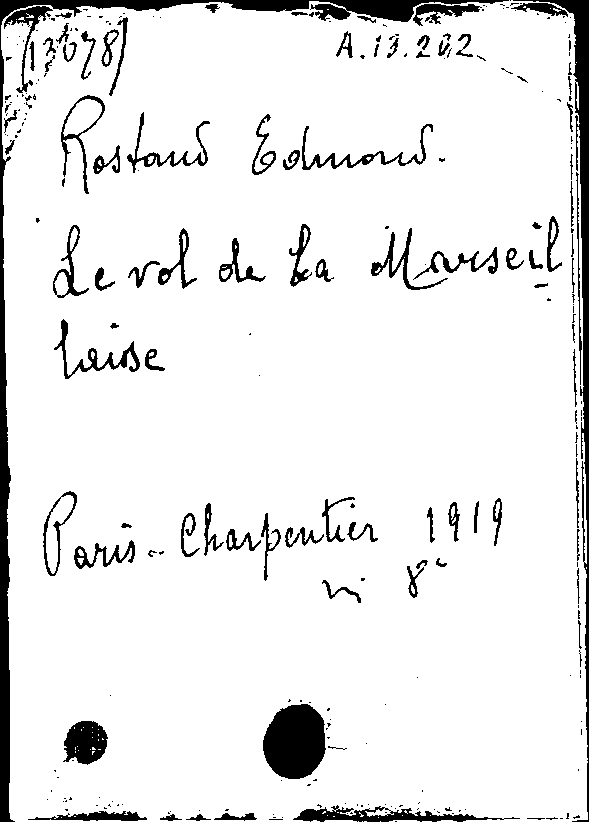 (13678) A.13.202
Rostand Edmond.
Le vol de La Marseil
laise
Paris - Charpentier 1919
in 8°